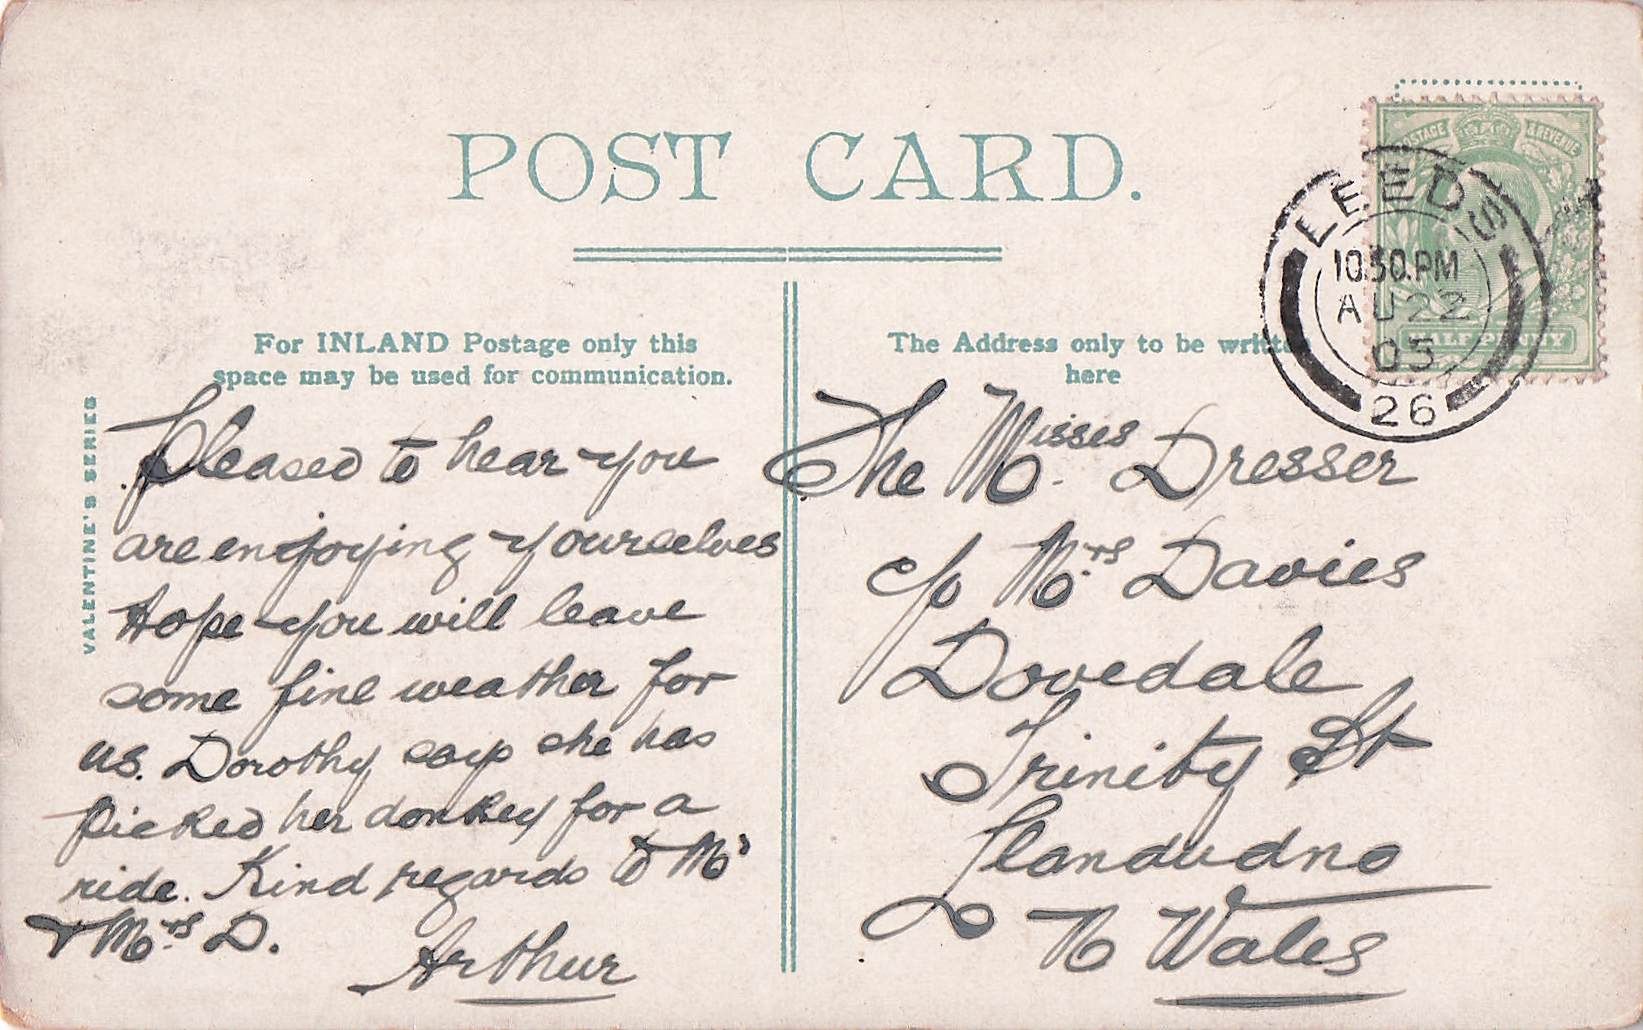 POST CARD.
For INLAND Postage only this
space may be used for communication.
The Address only to be written
here
VALENTINE'S SERIES
POSTAGE & REVENUE
HALF PENNY
LEEDS
10.30.PM
AU 22
05
26
Pleased to hear you
are enjoying yourselves
Hope you will leave
some fine weather for
us. Dorothy says she has
picked her donkey for a
ride. Kind regards to Mr
& Mrs D.
Arthur
The Misses Dresser
c/o Mrs Davies
Dovedale
Trinity St
Llandudno
N Wales